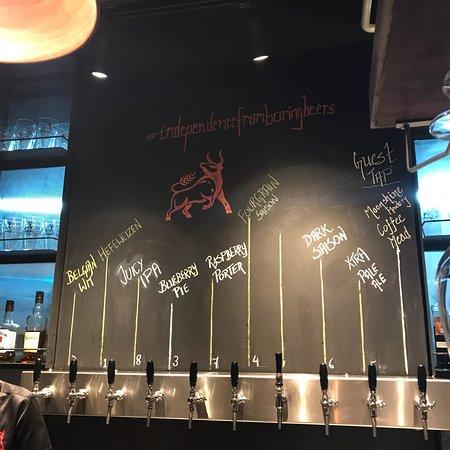 #independencefromboringbeers
Guest
Tap
Moonshine
Meadery
Coffee
Mead
Fourgrain
Saison
Hefeweizen
Belgian
Wit
Juicy
IPA
Blueberry
Pie
Raspberry
Porter
Dark
Saison
Xtra
Pale
Ale
1
8
3
7
4
6